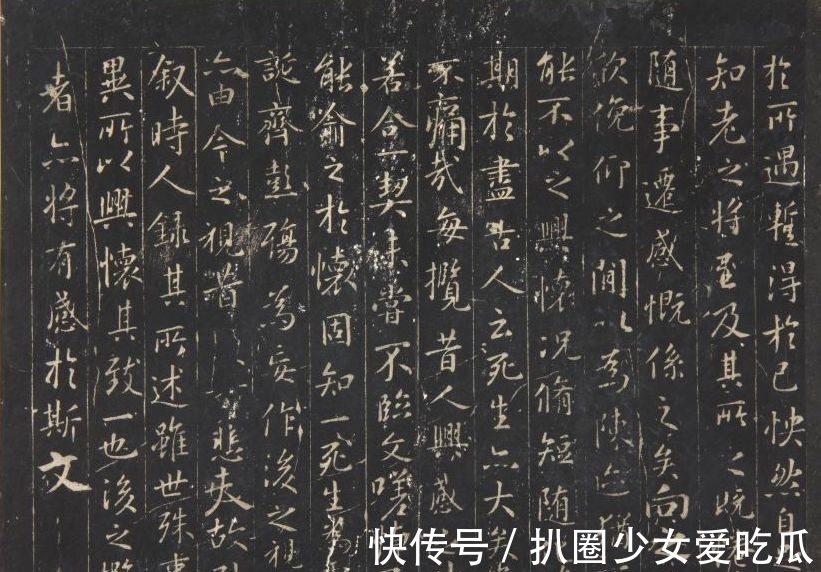 於所遇蹔得於己怏然自
知老之將至及其所之既
随事遷感慨係之矣向
欣俛仰之閒以為陳迹猶
能不以之興懷況脩短随
期於盡古人云死生亦大矣
不痛哉每攬昔人興感
若合一契未嘗不臨文嗟
能喻之於懷固知一死生為
誕齊彭殤為妄作後之視
亦由今之視昔悲夫故
叙時人録其所述雖世殊事
異所以興懷其致一也後之攬
者亦將有感於斯文
快传号 / 扒圈少女爱吃瓜